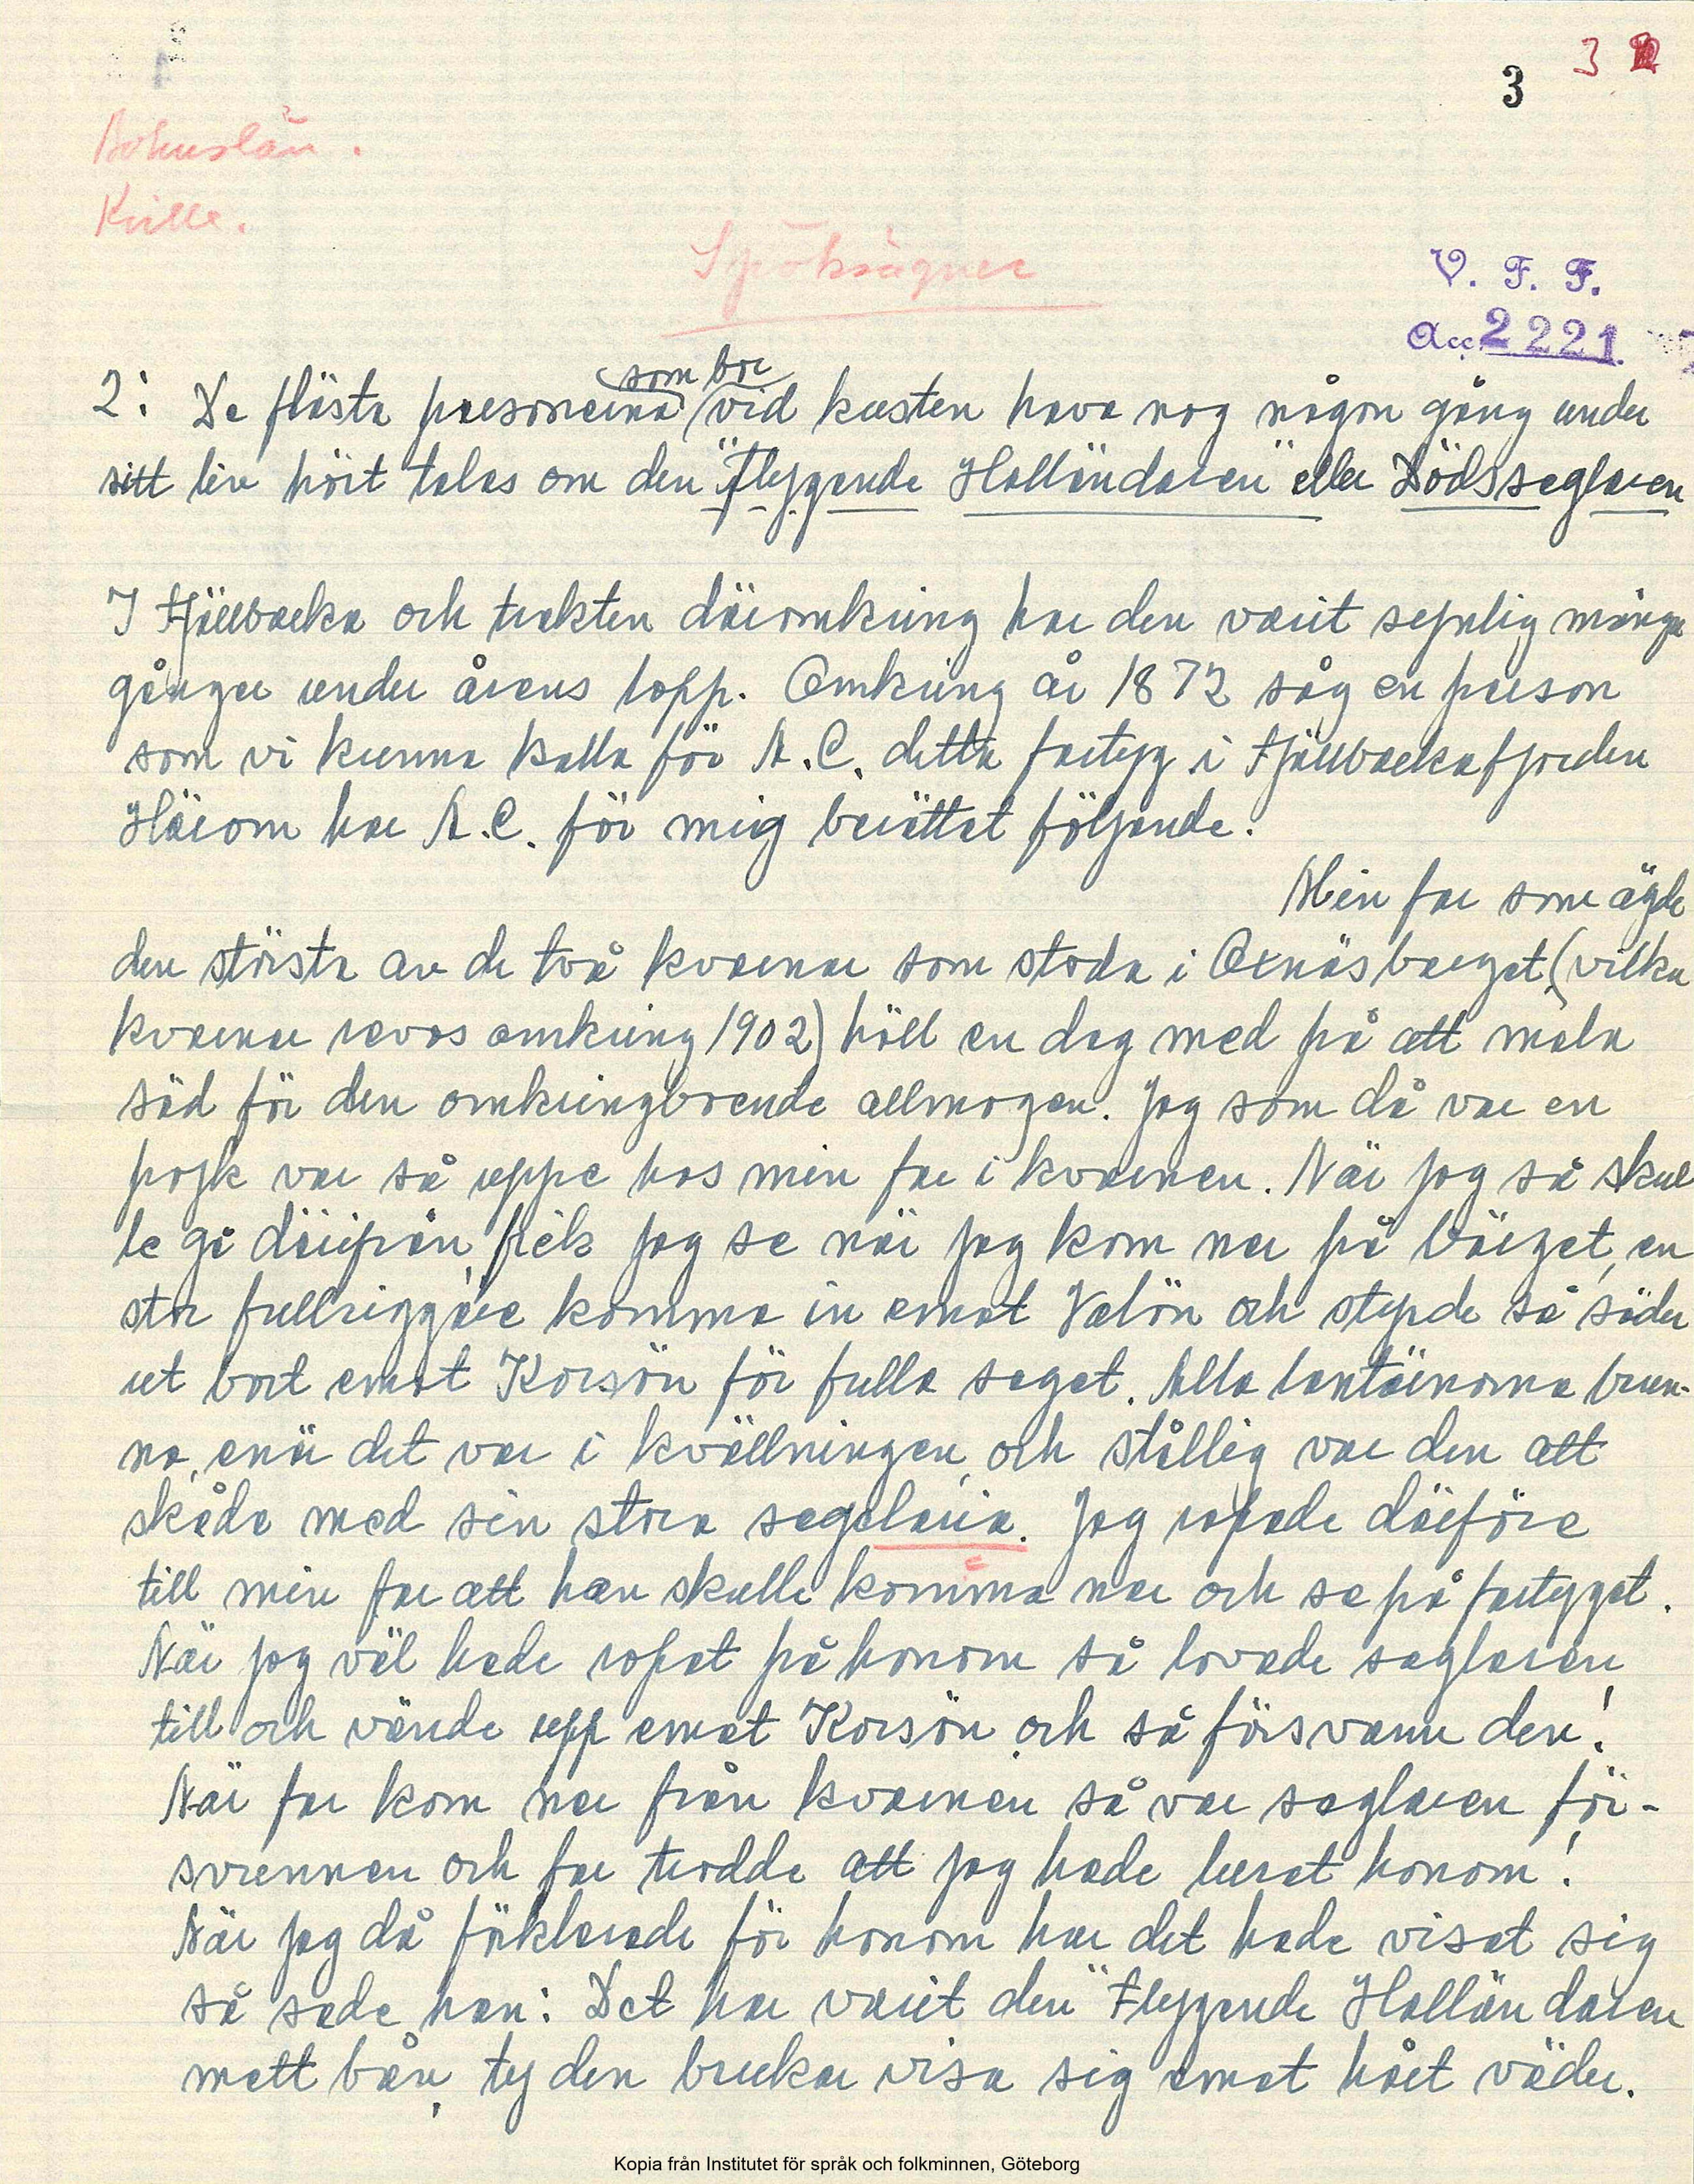 3 3
Bohuslän.
Kville.
Spöksägner
V. F. F.
Acc. 2221
som bor
2: De flästa personerna vid kusten hava nog någon gång under
sitt liv hört talas om den "Flygande Holländaren" eller Dödsseglaren
I Fjällbacka och trakten däromkring har den varit synlig många
gånger under årens lopp. Omkring år 1872 såg en person
som vi kunna kalla för A.C. detta fartyg i Fjällbackafjorden
Härom har A.C. för mig berättat följande:
Min far som ägde
den största av de två kvarnar som stodo i Oxnäsbarget (vilka
kvarnar revos omkring 1902) höll en dag med på att mala
säd för den omkringboende allmogen. Jag som då var en
pojk var så uppe hos min far i kvarnen. När jag så skul
le gå därifrån, fick jag se när jag kom ner på bärget, en
stor fullriggare komma in emot Valön och styrde så söder
ut bort emot Korsön för fulla segel. Alla lantärnorna brun-
no, enär det var i kvällningen, och ståtlig var den att
skåda med sin stora segelaria. Jag ropade därföre
till min far att han skulle komma ner och se på fartyget.
När jag väl hade ropat på honom så lovade seglaren
till och vände upp emot Korsön och så försvann den!
När far kom ner från kvarnen så var seglaren för-
svunnen och far trodde att jag hade lurat honom!
När jag då förklarade för honom hur det hade visat sig
så sade han: Det har varit den "Flygande Holländaren
mett barn, ty den brukar visa sig emot hårt väder.
Kopia från Institutet för språk och folkminnen, Göteborg